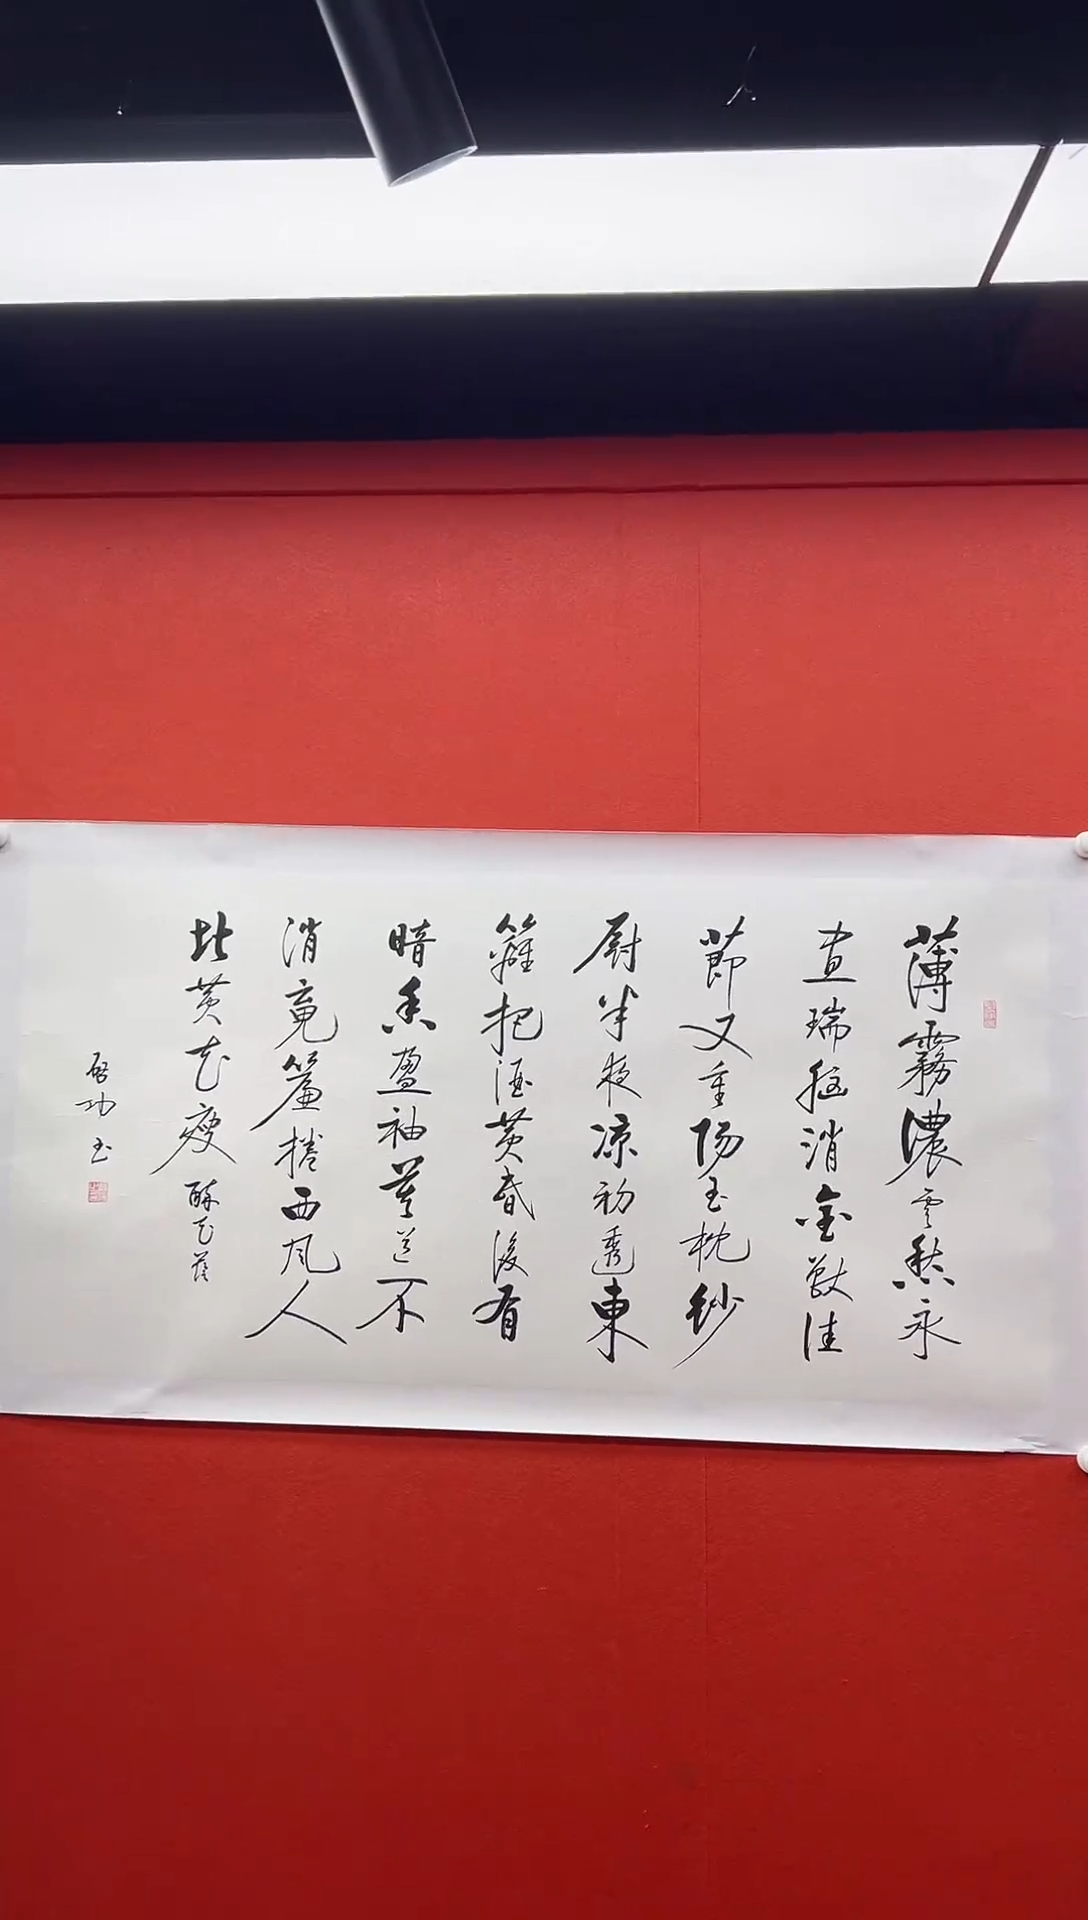 薄霧濃雲愁永
晝瑞腦消金獸佳
節又重陽玉枕紗
厨半夜凉初透東
籬把酒黃昏後有
暗香盈袖莫道不
消竟簾捲西風人
比黃花瘦 醉花蔭
啓功書